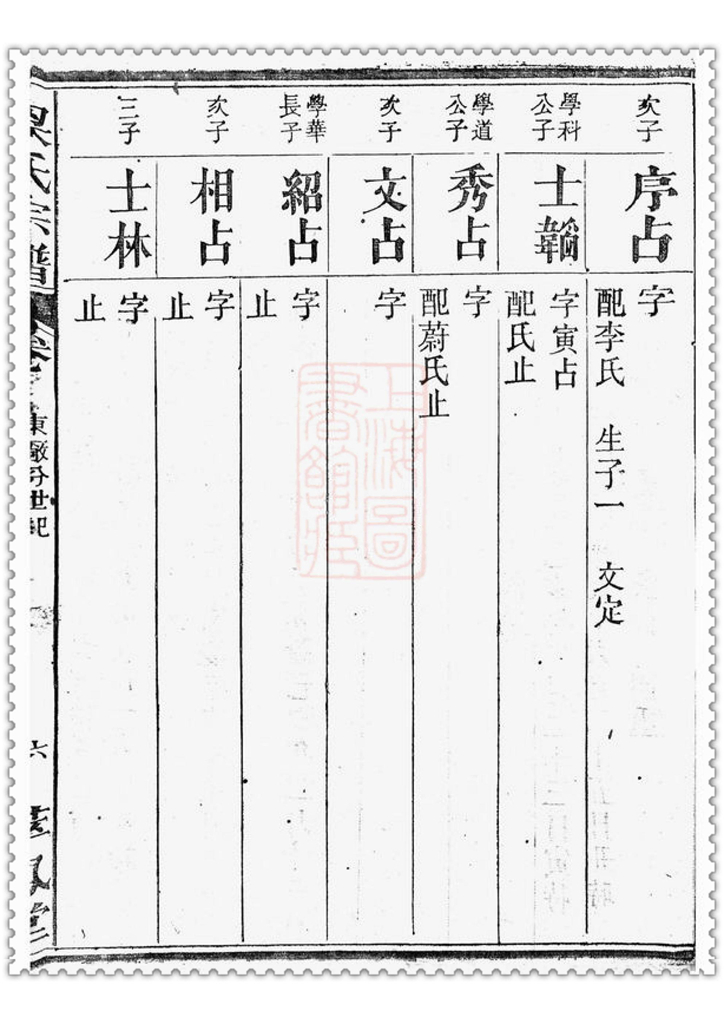 次子
序占
字
配李氏 生子一 文定
學科
公子
士韜
字寅占
配氏止
學道
公子
秀占
字
配蔚氏止
次子
文占
字
學華
長子
紹占
字
止
次子
相占
字
止
三子
士林
字
止
氏宗譜
卷
東廠分世紀
六
鳳堂
上海圖
書館藏